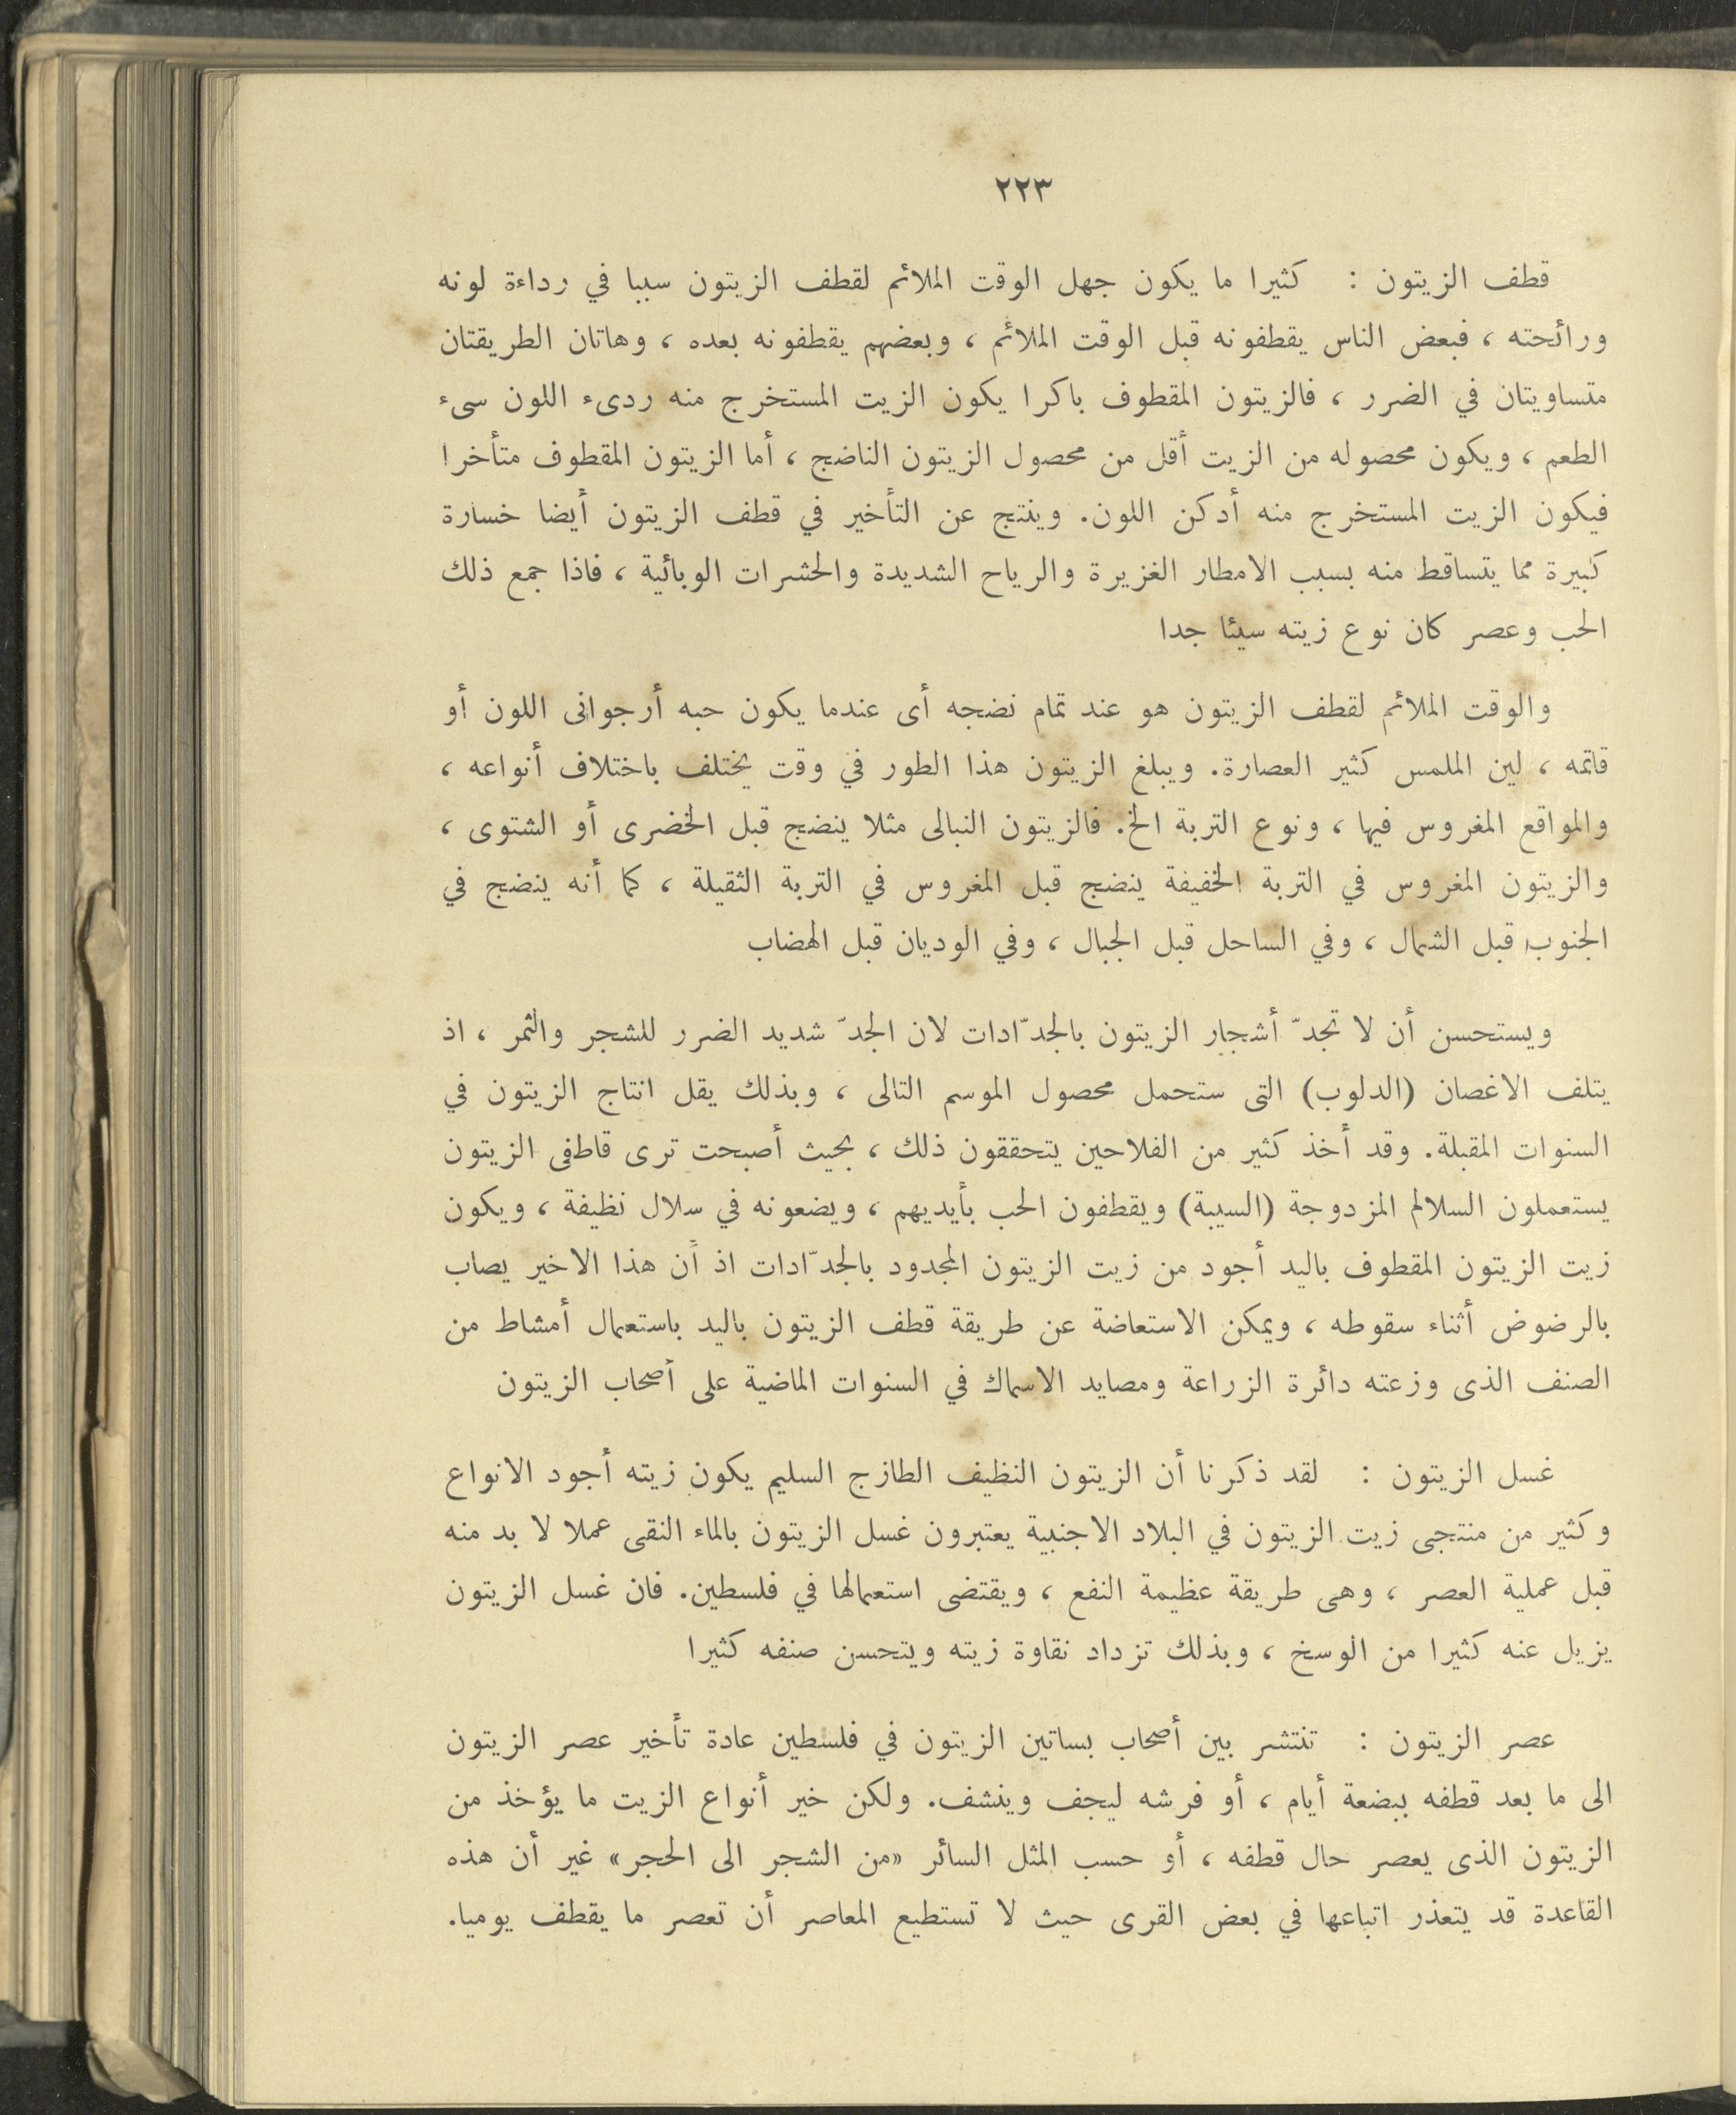 ٢٢٣
قطف الزيتون : كثيرا ما يكون جهل الوقت الملائم لقطف الزيتون سببا في رداءة لونه
ورائحته ، فبعض الناس يقطفونه قبل الوقت الملائم ، وبعضهم يقطفونه بعده ، وهاتان الطريقتان
متساويتان في الضرر ، فالزيتون المقطوف باكرا يكون الزيت المستخرج منه ردىء اللون سىء
الطعم ، ويكون محصوله من الزيت أقل من محصول الزيتون الناضج ، أما الزيتون المقطوف متأخرا
فيكون الزيت المستخرج منه أدكن اللون. وينتج عن التأخير في قطف الزيتون أيضا خسارة
كبيرة مما يتساقط منه بسبب الامطار الغزيرة والرياح الشديدة والحشرات الوبائية ، فاذا جمع ذلك
الحب وعصر كان نوع زيته سيئا جدا
والوقت الملائم لقطف الزيتون هو عند تمام نضجه أى عندما يكون حبه أرجوانى اللون أو
قاتمه ، لين الملمس كثير العصارة. ويبلغ الزيتون هذا الطور في وقت يختلف باختلاف أنواعه ،
والمواقع المغروس فيها ، ونوع التربة الخ. فالزيتون النبالى مثلا ينضج قبل الخضرى أو الشتوى ،
والزيتون المغروس في التربة الخفيفة ينضج قبل المغروس في التربة الثقيلة ، كما أنه ينضج في
الجنوب قبل الشمال ، وفي الساحل قبل الجبال ، وفي الوديان قبل الهضاب
ويستحسن أن لا تجدّ أشجار الزيتون بالجدّادات لان الجدّ شديد الضرر للشجر والثمر ، اذ
يتلف الاغصان (الدلوب) التى ستحمل محصول الموسم التالى ، وبذلك يقل انتاج الزيتون في
السنوات المقبلة. وقد أخذ كثير من الفلاحين يتحققون ذلك ، بحيث أصبحت ترى قاطفى الزيتون
يستعملون السلالم المزدوجة (السيبة) ويقطفون الحب بأيديهم ، ويضعونه في سلال نظيفة ، ويكون
زيت الزيتون المقطوف باليد أجود من زيت الزيتون المجدود بالجدّادات اذ أن هذا الاخير يصاب
بالرضوض أثناء سقوطه ، ويمكن الاستعاضة عن طريقة قطف الزيتون باليد باستعمال أمشاط من
الصنف الذى وزعته دائرة الزراعة ومصايد الاسماك في السنوات الماضية على أصحاب الزيتون
غسل الزيتون : لقد ذكرنا أن الزيتون النظيف الطازج السليم يكون زيته أجود الانواع
وكثير من منتجى زيت الزيتون في البلاد الاجنبية يعتبرون غسل الزيتون بالماء النقى عملا لا بد منه
قبل عملية العصر ، وهى طريقة عظيمة النفع ، ويقتضى استعمالها في فلسطين. فان غسل الزيتون
يزيل عنه كثيرا من الوسخ ، وبذلك تزداد نقاوة زيته ويتحسن صنفه كثيرا
عصر الزيتون : تنتشر بين أصحاب بساتين الزيتون في فلسطين عادة تأخير عصر الزيتون
الى ما بعد قطفه ببضعة أيام ، أو فرشه ليجف وينشف. ولكن خير أنواع الزيت ما يؤخذ من
الزيتون الذى يعصر حال قطفه ، أو حسب المثل السائر «من الشجر الى الحجر» غير أن هذه
القاعدة قد يتعذر اتباعها في بعض القرى حيث لا تستطيع المعاصر أن تعصر ما يقطف يوميا.